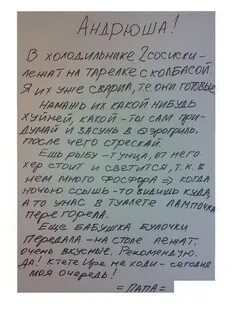 АНДРЮША!
В ХОЛОДИЛЬНИКЕ 2 СОСИСКИ -
ЛЕЖАТ НА ТАРЕЛКЕ С КОЛБАСОЙ.
Я ИХ УЖЕ СВАРИЛ, ТЕ ОНИ ГОТОВЫЕ
НАМАЖЬ ИХ КАКОЙ НИБУДЬ
ХУЙНЕЙ, КАКОЙ - ТЫ САМ ПРИ-
ДУМАЙ И ЗАСУНЬ В АЭРОГРИЛЬ,
ПОСЛЕ ЧЕГО СТРЕСКАЙ.
ЕШЬ РЫБУ - ТУНЦА, ОТ НЕГО
ХЕР СТОИТ И СВЕТИТСЯ, Т.К. В
НЕМ МНОГО ФОСФОРА => КОГДА
НОЧЬЮ ССЫШЬ - ТО ВИДИШЬ КУДА,
А ТО У НАС В ТУАЛЕТЕ ЛАМПОЧКА
ПЕРЕГОРЕЛА.
ЕЩЕ БАБУШКА БУЛОЧКИ
ПЕРЕДАЛА - НА СТОЛЕ ЛЕЖАТ.
ОЧЕНЬ ВКУСНЫЕ. РЕКОМЕНДУЮ.
ДА! К ТЕТЕ ИРЕ НЕ ХОДИ - СЕГОДНЯ
МОЯ ОЧЕРЕДЬ!
= ПАПА =